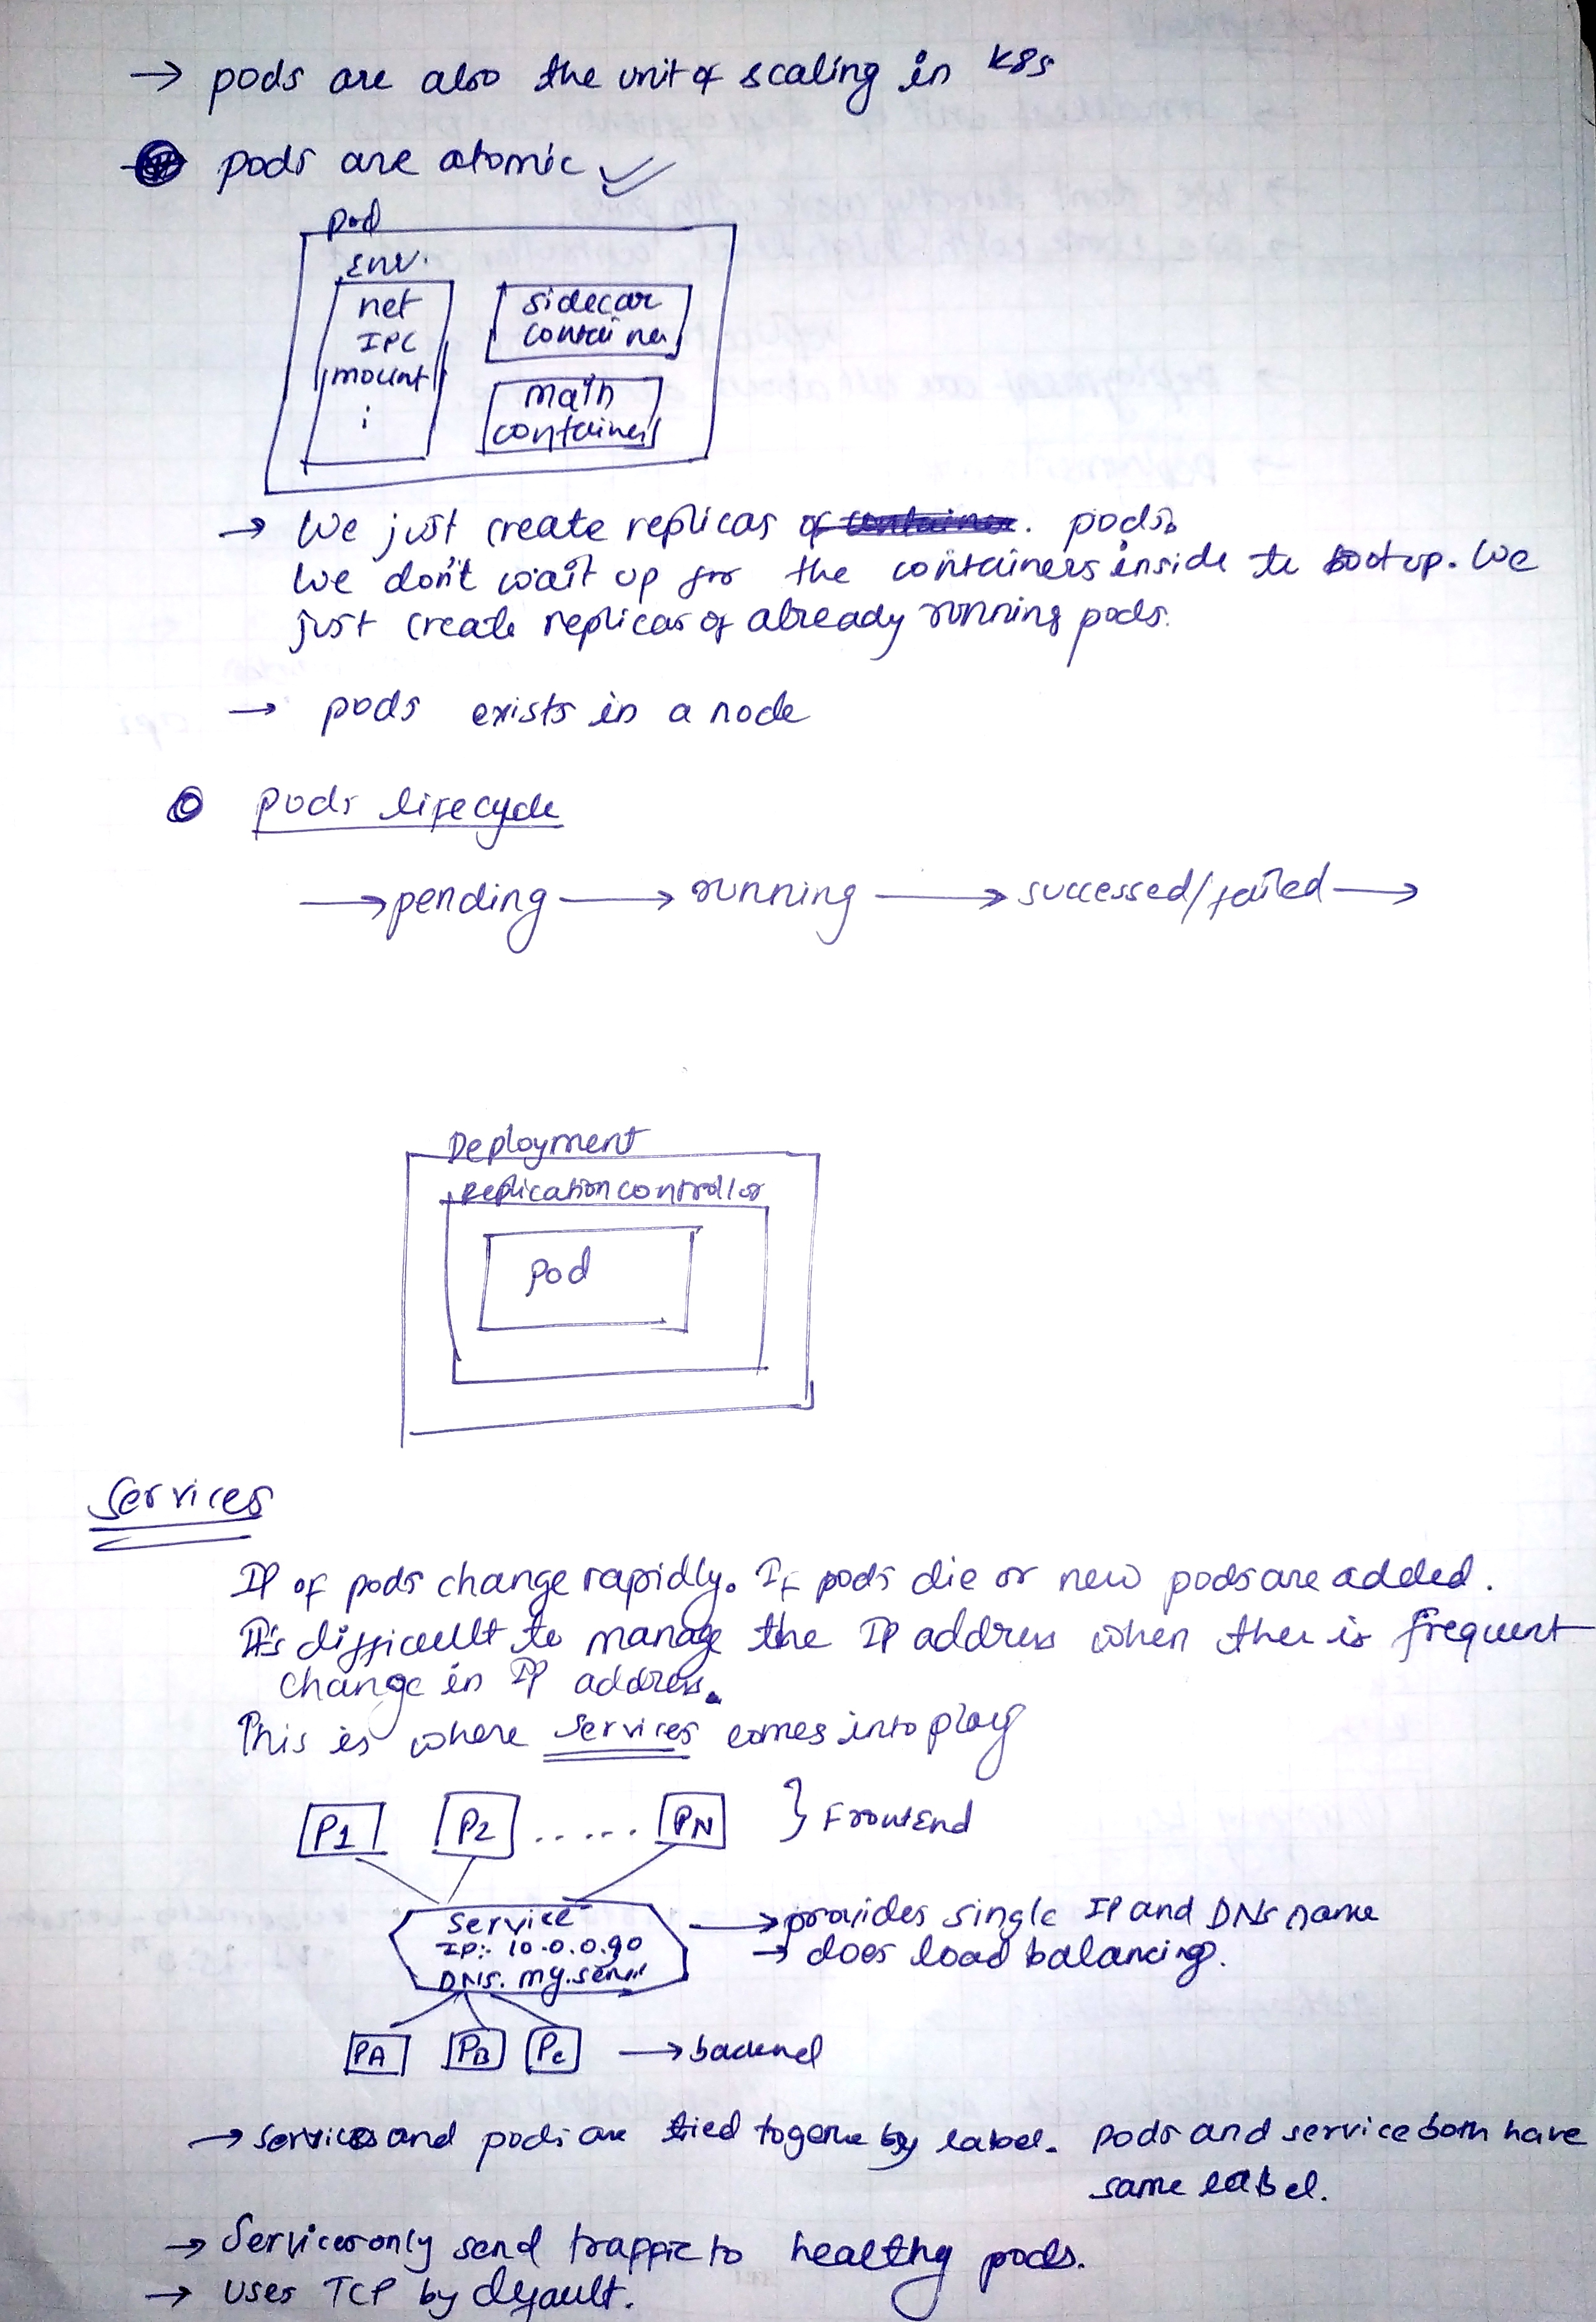 → pods are also the unit of scaling in K8s
pods are atomic
pod
Env.
net
IPC
mount
:
sidecar
container
main
container
→ We just create replicas of container. pods.
We don't wait up for the containers inside to bootup. We
just create replicas of already running pods.
→ pods exists in a node
pods lifecycle
→ pending → running → successed/failed →
Deployment
Replication controllor
pod
Services
IP of pods change rapidly. If pods die or new pods are added.
It's difficult to manage the IP address when ther is frequent
change in IP address.
This is where services comes into play
P1 P2 ...... PN } FrontEnd
service
IP:- 10.0.0.90
DNS. my.servi
→ provides single IP and DNS name
→ does load balancing.
PA PB Pc → backend
→ services and pods are tied together by label. pods and service both have
same label.
→ Services only send traffic to healthy pods.
→ uses TCP by default.